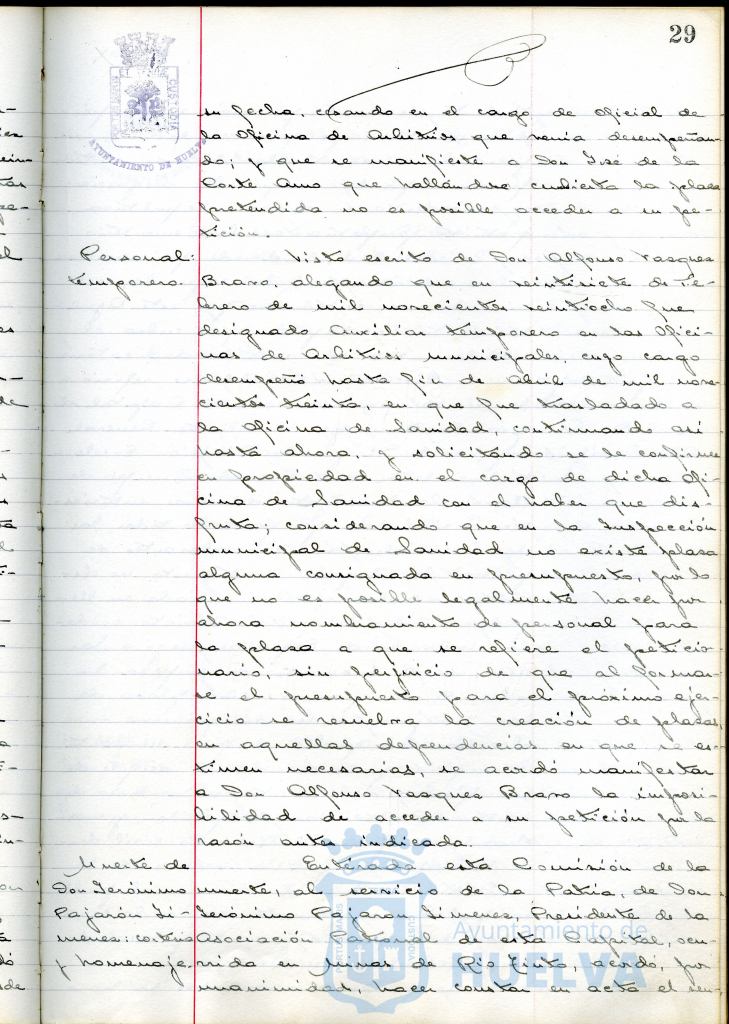 29
AYUNTAMIENTO DE HUELVA
su fecha, cesando en el cargo de Oficial de
la Oficina de Arbitrios que venia desempeñan-
do; y que se manifieste a Don José de la
Corte Amo que hallándose cubierta la plaza
pretendida no es posible acceder a su pe-
tición.
Personal:
temporero.
Visto escrito de Don Alfonso Vasques
Bravo, alegando que en veintisiete de Fe-
brero de mil novecientos veintiocho fue
designado Auxiliar temporero en las Ofici-
nas de Arbitrios municipales, cuyo cargo
desempeñó hasta fin de Abril de mil nove-
cientos treinta, en que fue trasladado a
la Oficina de Sanidad, continuando asi
hasta ahora, y solicitando se le confirme
en propiedad en el cargo de dicha Ofi-
cina de Sanidad con el haber que dis-
fruta; considerando que en la Inspección
municipal de Sanidad no existe plaza
alguna consignada en presupuesto, por lo
que no es posible legalmente hacer por
ahora nombramiento de personal para
la plaza a que se refiere el peticio-
nario, sin perjuicio de que al formar-
se el presupuesto para el próximo ejer-
cicio se resuelva la creación de plazas,
en aquellas dependencias en que se es-
timen necesarias, se acordó manifestar
a Don Alfonso Vasques Bravo la imposi-
bilidad de acceder a su petición por la
rasón antes indicada.
Muerte de
Don Jerónimo
Pajarón Ji-
menes:
y homenaje.
Enterada esta Comisión de la
muerte, al servicio de la Patria, de Don
Jerónimo Pajarón Jimenes, Presidente de la
Asociación Patronal de esta Capital, ocu-
rrida en Minas de Rio Tinto, acordó, por
unanimidad, hacer constar en acta el sen-
Ayuntamiento de
HUELVA